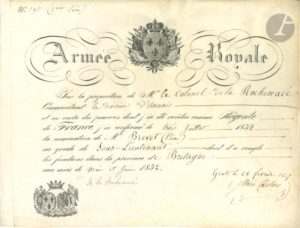 Armée Royale
Sur la proposition de Mr le Colonel de la Rochemacé
Commandant la division d'Ancenis
et en vertu des pouvoirs dont j'ai été revêtue comme Régente
de France, j'ai confirmé le trois Juillet 1832
la nomination de Mr Brevet
au grade de Sous-Lieutenant dont il a rempli
les fonctions dans la province de Bretagne
aux mois de Mai et Juin 1832.
Gratz le 28 février
de la Rochemacé